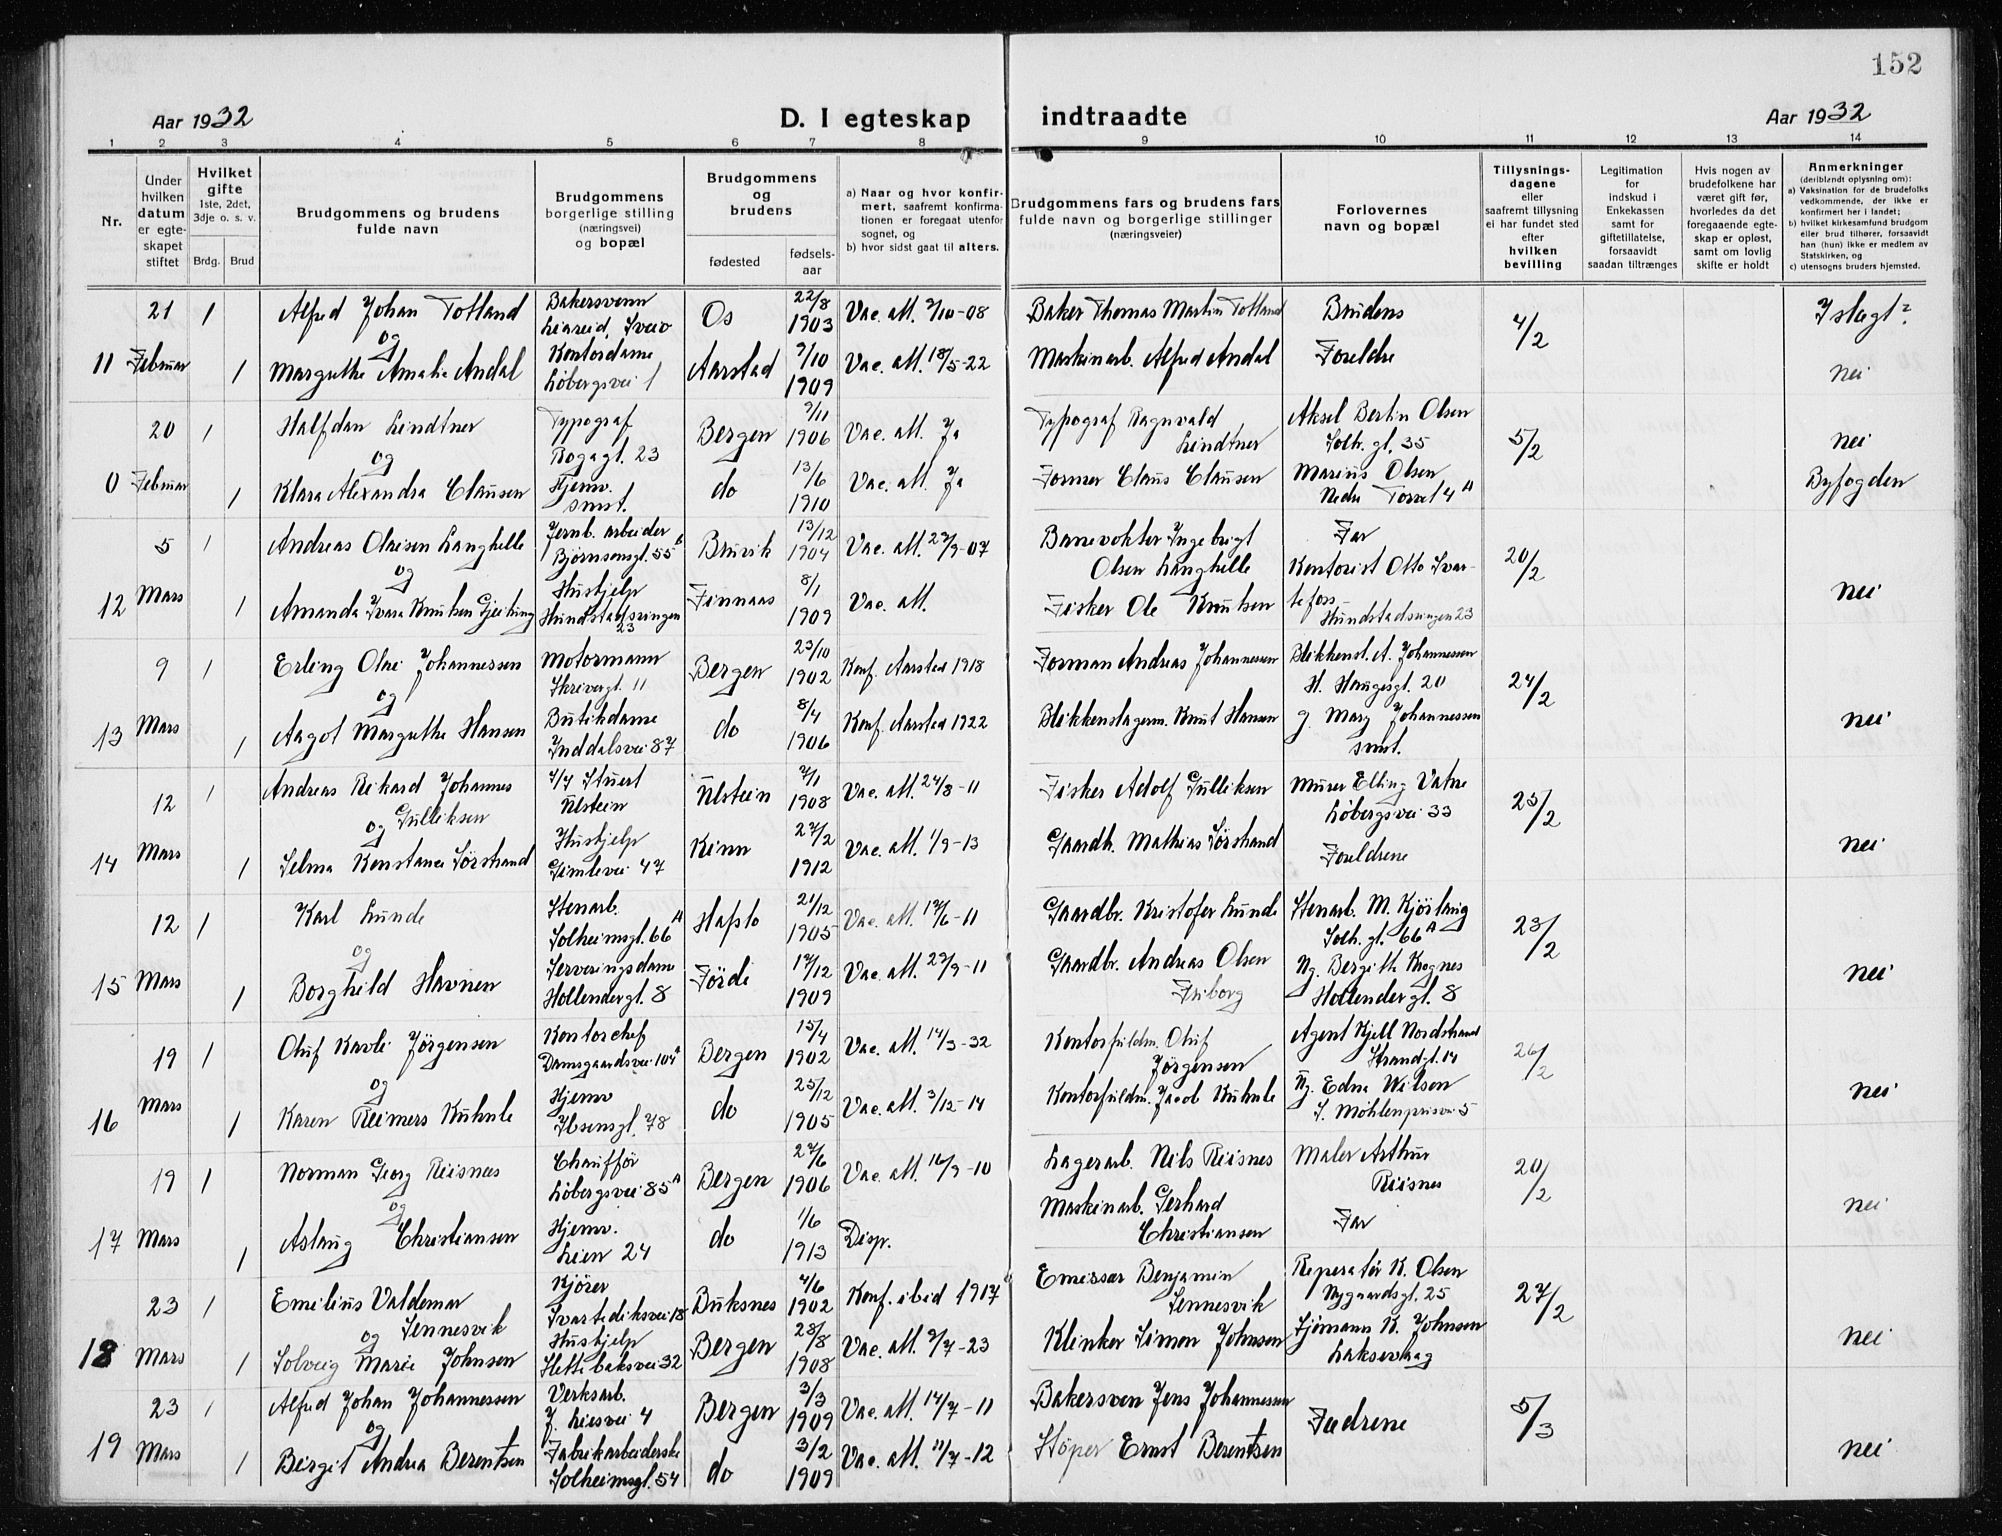 152
Aar 1932
D. I egteskap indtraadte
Aar 1932
1 2 3 4 5 6 7 8 9 10 11 12 13 14
Nr.
Under hvilken datum er egteskapet stiftet
Hvilket gifte 1ste, 2det, 3dje o. s. v.
Brdg. Brud
Brudgommens og brudens fulde navn
Brudgommens borgerlige stilling (næringsvei) og bopæl
Brudgommens og brudens
fødested
fødselsaar
a) Naar og hvor konfirmert, saafremt konfirmationen er foregaat utenfor sognet, og
b) hvor sidst gaat til alters.
Brudgommens fars og brudens fars fulde navn og borgerlige stillinger (næringsveier)
Forlovernes navn og bopæl
Tillysningsdagene eller saafremt tillysning ei har fundet sted efter hvilken bevilling
Legitimation for indskud i Enkekassen samt for giftetillatelse, forsaavidt saadan tiltrænges
Hvis nogen av brudefolkene har været gift før, hvorledes da det foregaaende egteskap er opløst, samt om lovlig skifte er holdt
Anmerkninger
(deriblandt oplysning om):
a) Vaksination for de brudefolks vedkommende, der ikke er konfirmert her i landet;
b) hvilket kirkesamfund brudgom eller brud tilhører, forsaavidt han (hun) ikke er medlem av Statskirken, og
c) utensogns bruders hjemsted.
21 1 Alfred Johan Totland Bakersvenn Os 22/8 1903 Vac. att. Baker Thomas Martin Totland Brudens 4/2 I slegt?
og
11 Februar 1 Margrethe Amalie Andal Kontordame Løbergsvei 1 Aarstad 9/10 1909 Vac. att. 18/5-22 Maskinarb. Alfred Andal Foreldre nei
20 1 Halfdan Lindtner Typograf Bergen 9/11 1906 Vac. att. Ja Typograf Ragnvald Lindtner Aksel Bertin Olsen Solh. gt. 35 5/2 nei
og
0 Februar 1 Klara Alexandra Clausen Hjemv. smst. do 13/6 1910 Vac. att. Ja Former Claus Clausen Marius Olsen Nedre Torvet 4A Byfogden
5 1 Andreas Olaisen Langhelle Jernb. arbeider Bjørnsonsgt. 55 Bruvik 13/12 1904 Vac. att. Banevokter Ingebrigt Olsen Langhelle Far 20/2
og
12 Mars 1 Amanda Ivara Knutsen Husjelp Hundstadsvingen 23 Finnaas 8/1 1909 Vac. att. Fisker Ole Knutsen Kontorist Otto Svartefoss Hundstadsvingen 23 nei
9 1 Erling Olai Johannessen Motormann Skrivergt. 11 Bergen 23/10 1902 Konf. Aarstad 1918 Forman Andreas Johannessen Blikkensl. A. Johannessen H. Haugesgt. 20 24/2
og
13 Mars 1 Aagot Margrethe Hansen Butikdame Inddalsvei 87 do 8/4 1906 Konf. Aarstad 1922 Blikkenslagerm. Knut Hansen g. Marg Johannessen smst. nei
12 1 Andreas Rikard Johannes Gulliksen Stuert Ulstein Ulstein 2/1 1908 Vac. att. 24/8-11 Fisker Adolf Gulliksen Murer Elling Vatne Løbergsvei 33 25/2
og
14 Mars 1 Selma Konstance Sørstrand Husjelp Gimlevei 47 Kinn 27/2 1912 Vac. att. 1/9-13 Gaardb. Mathias Sørstrand Foreldrene nei
12 1 Karl Lunde Stenarb. Solheimsgt. 66A Hafslo 21/12 1905 Vac. att. 17/6-11 Gaardbr. Kristofer Lunde Stenarb. M. Kjørlaug Solh. gt. 66A 23/2
og
15 Mars 1 Borghild Havnen Serveringsdame Hollendergt. 8 Førde 17/12 1909 Vac. att. Gaardbr. Andreas Olsen Friborg Ug. Bergitte Hollendergt. 8 nei
19 1 Oluf Kavli Jørgensen Kontorchef Damsgaardsvei 104A Bergen 15/4 1902 Vac. att. 14/3-32 Kontorfuldm. Oluf Jørgensen Agent Kjell Nordstrand Strandgt. 14 26/2
og
16 Mars 1 Karen Reimers Kuhnle Hjemv Ibsensgt. 78 do 25/12 1905 Vac. att. 3/12-14 Kontorfuldm. Jacob Kuhnle Ug. Edna Wilson S. Møhlenprisvei 5 nei
19 1 Norman Georg Risnes Chauffør Løbergsvei 85A Bergen 27/6 1906 Vac. att. 16/9-10 Lagerarb. Nils Risnes Maler Arthur Risnes 20/2
og
17 Mars 1 Aslaug Christiansen Hjemv. Leien 24 do 1/6 1913 Disp. Maskinarb. Gerhard Christiansen Far nei
23 1 Emilius Valdemar Sennesvik Kjører Svartediksvei 18 Buksnes 4/6 1902 Konf. ibid 1917 Emissær Benjamin Sennesvik Reperatør K. Olsen Nygaardsgt. 25 27/2
og
18 Mars 1 Solveig Marie Johnsen Husjelp Slettebaksvei 32 Bergen 28/8 1908 Vac. att. Klinker Simon Johnsen Sjømann K. Johnsen Laksevaag nei
23 1 Alfred Johan Johannessen Verksarb. J. Liesvei 4 Bergen 3/3 1909 Vac. att. 14/7-11 Bakersven Jens Johannessen Fædrene 5/3
og
19 Mars 1 Birgit Andrea Berentsen Fabrikarbeiderske Solheimsgt. 54 do 3/2 1909 Vac. att. 11/7-12 Støper Ernst Berentsen nei